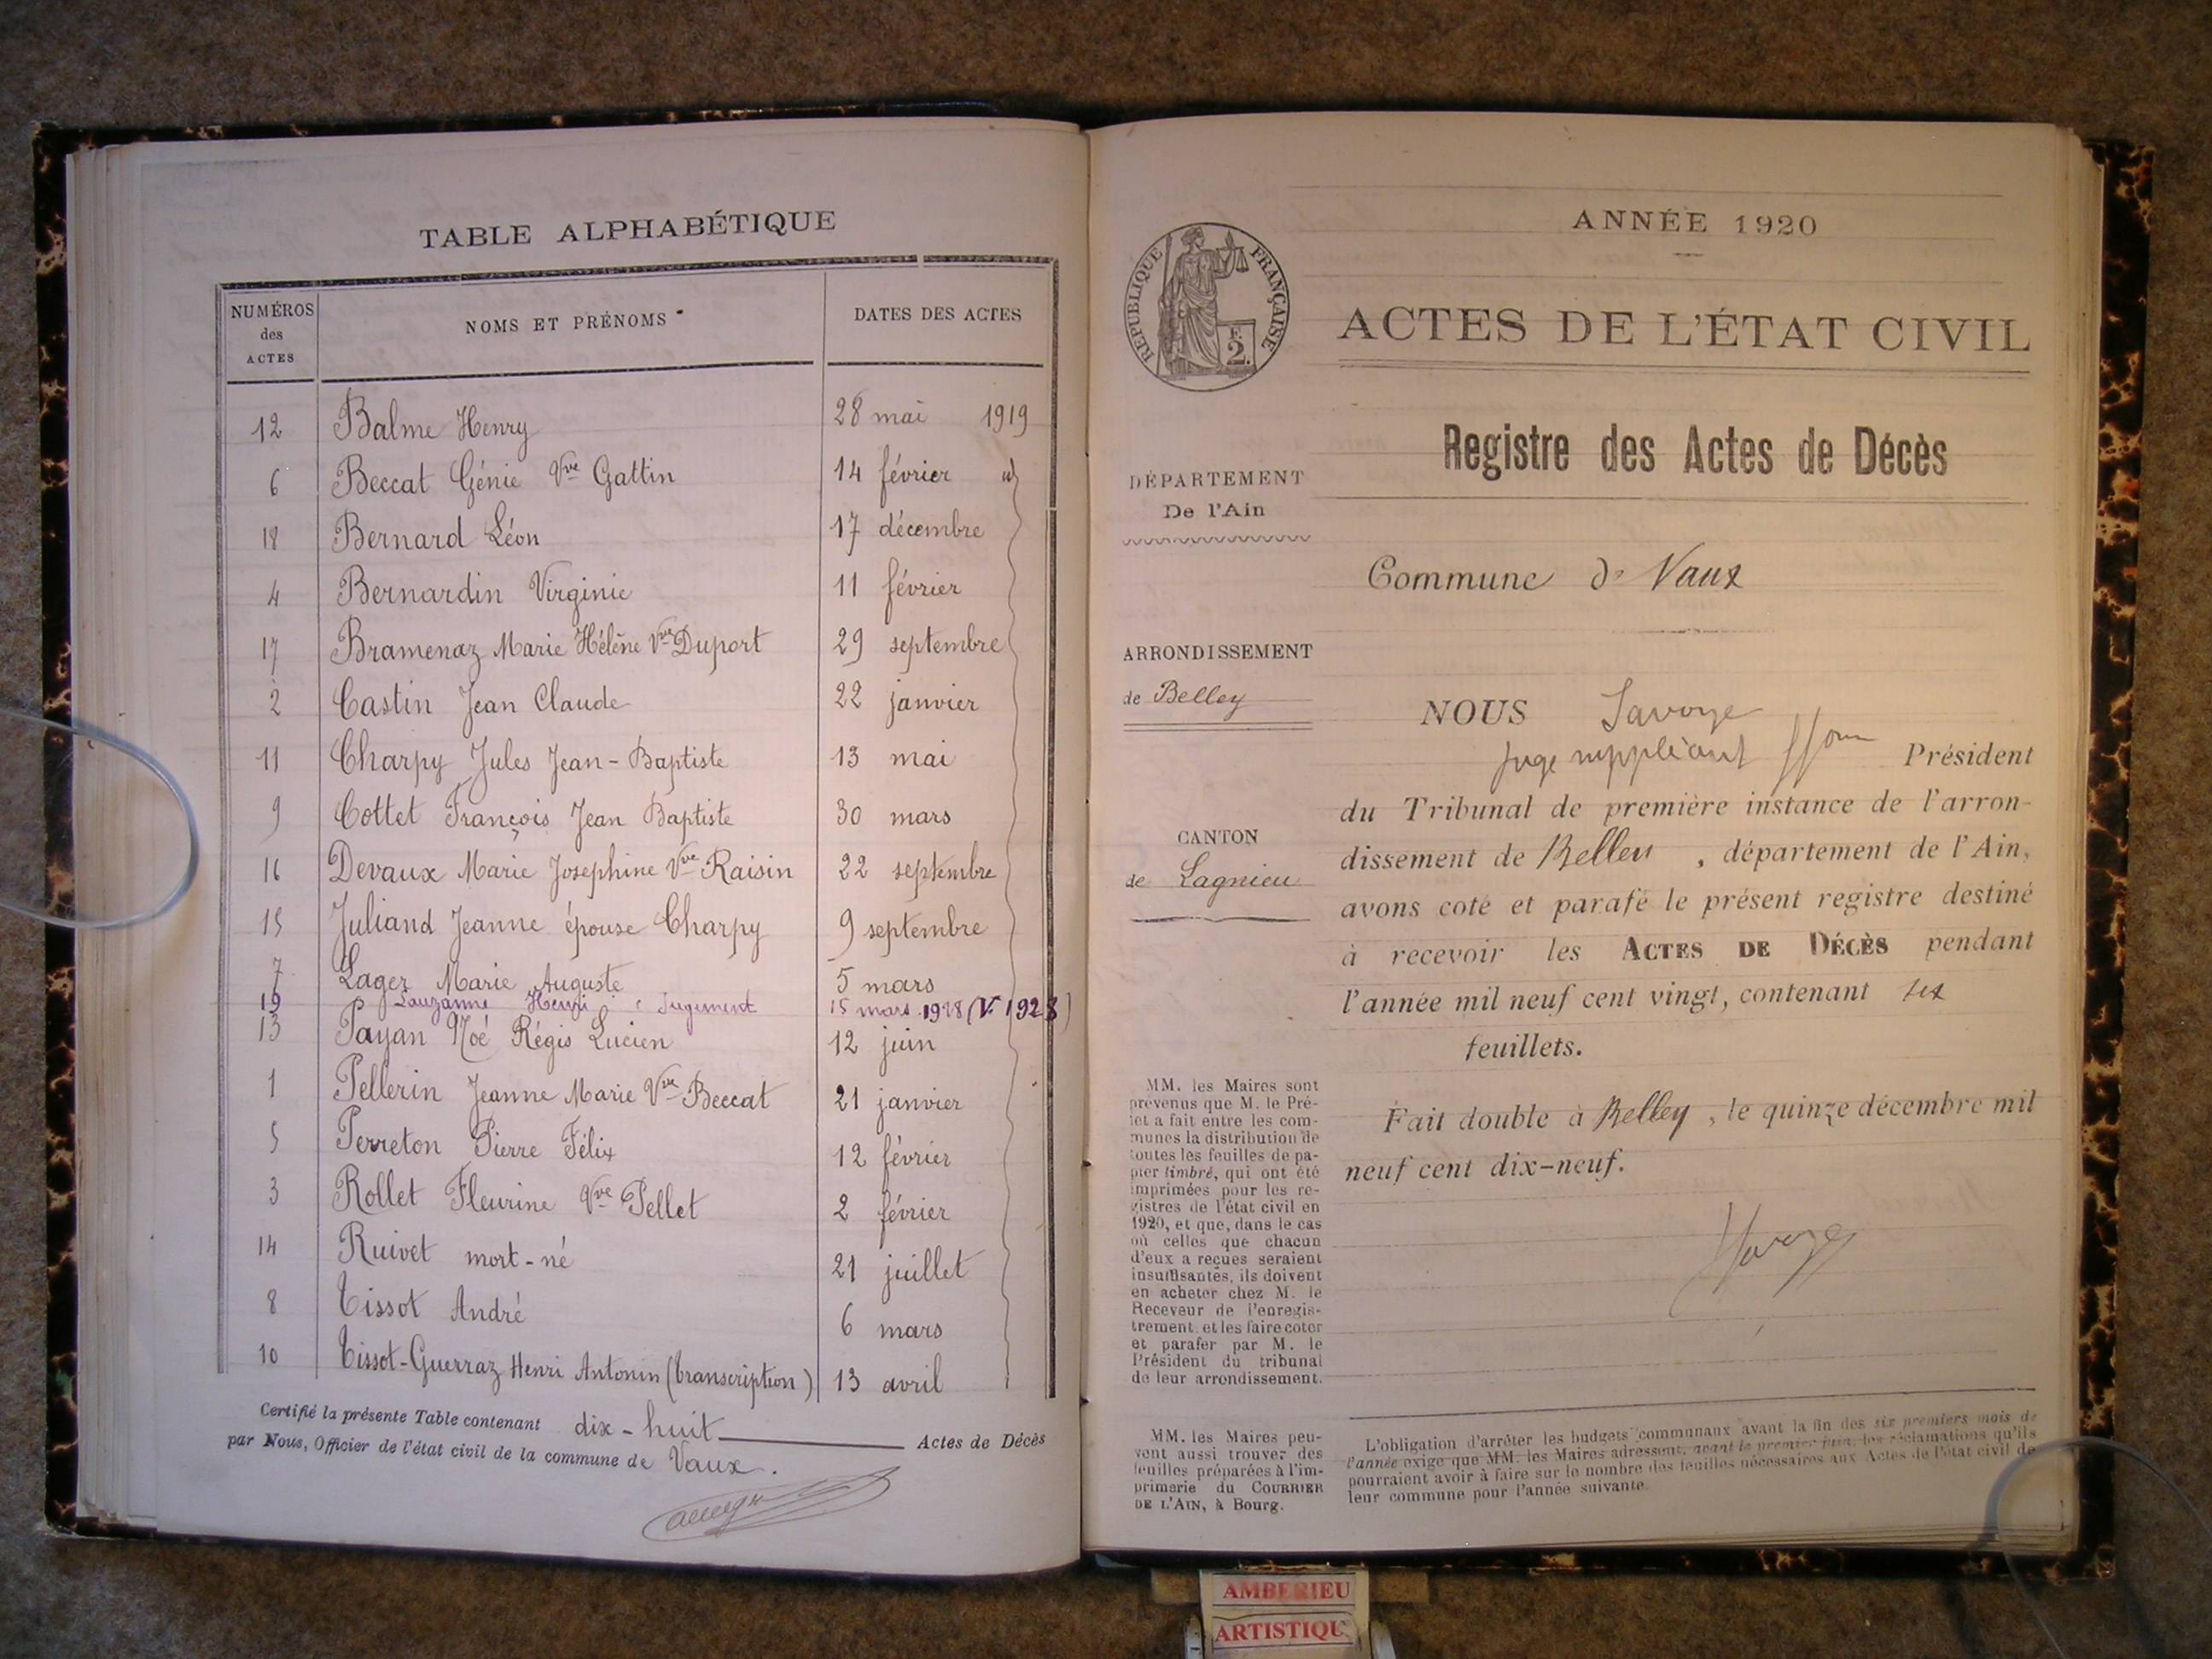 TABLE ALPHABÉTIQUE
NUMÉROS des ACTES NOMS ET PRÉNOMS DATES DES ACTES
12 Balme Henry 28 mai 1919
6 Beccat Génie Vve Gattin 14 février id
18 Bernard Léon 17 décembre
4 Bernardin Virginie 11 février
17 Bramenaz Marie Hélène Vve Duport 29 septembre
2 Castin Jean Claude 22 janvier
11 Charpy Jules Jean-Baptiste 13 mai
9 Cottet François Jean Baptiste 30 mars
16 Devaux Marie Josephine Vve Raisin 22 septembre
15 Juliand Jeanne épouse Charpy 9 septembre
7 Lager Marie Auguste 5 mars
19 Lauzanne Henri : Jugement 15 mars 1928 (V. 1928)
13 Payan Noé Régis Lucien 12 juin
1 Pellerin Jeanne Marie Vve Beccat 21 janvier
5 Perreton Pierre Félix 12 février
3 Rollet Fleurine Vve Pellet 2 février
14 Ruivet mort-né 21 juillet
8 Tissot André 6 mars
10 Tissot-Guerraz Henri Antonin (transcription) 13 avril
Certifié la présente Table contenant dix-huit Actes de Décès
par Nous, Officier de l'état civil de la commune de Vaux.
RÉPUBLIQUE FRANÇAISE
F.
2.
DÉPARTEMENT
De l'Ain
ARRONDISSEMENT
de Belley
CANTON
de Lagnieu
MM. les Maires sont
prévenus que M. le Pré-
fet a fait entre les com-
munes la distribution de
toutes les feuilles de pa-
pier timbré, qui ont été
imprimées pour les re-
gistres de l'état civil en
1920, et que, dans le cas
où celles que chacun
d'eux a reçues seraient
insuffisantes, ils doivent
en acheter chez M. le
Receveur de l'enregis-
trement, et les faire coter
et parafer par M. le
Président du tribunal
de leur arrondissement.
MM. les Maires peu-
vent aussi trouver des
feuilles préparées à l'im-
primerie du COURRIER
DE L'AIN, à Bourg.
ANNÉE 1920
ACTES DE L'ÉTAT CIVIL
Registre des Actes de Décès
Commune de Vaux
NOUS Savoye
Juge suppléant ffon Président
du Tribunal de première instance de l'arron-
dissement de Belley, département de l'Ain,
avons coté et parafé le présent registre destiné
à recevoir les ACTES DE DÉCÈS pendant
l'année mil neuf cent vingt, contenant six
feuillets.
Fait double à Belley, le quinze décembre mil
neuf cent dix-neuf.
Savoye
L'obligation d'arrêter les budgets communaux avant la fin des six premiers mois de
l'année exige que MM. les Maires adressent, avant le premier juin, les réclamations qu'ils
pourraient avoir à faire sur le nombre des feuilles nécessaires aux Actes de l'état civil de
leur commune pour l'année suivante.
AMBERIEU
ARTISTIQU